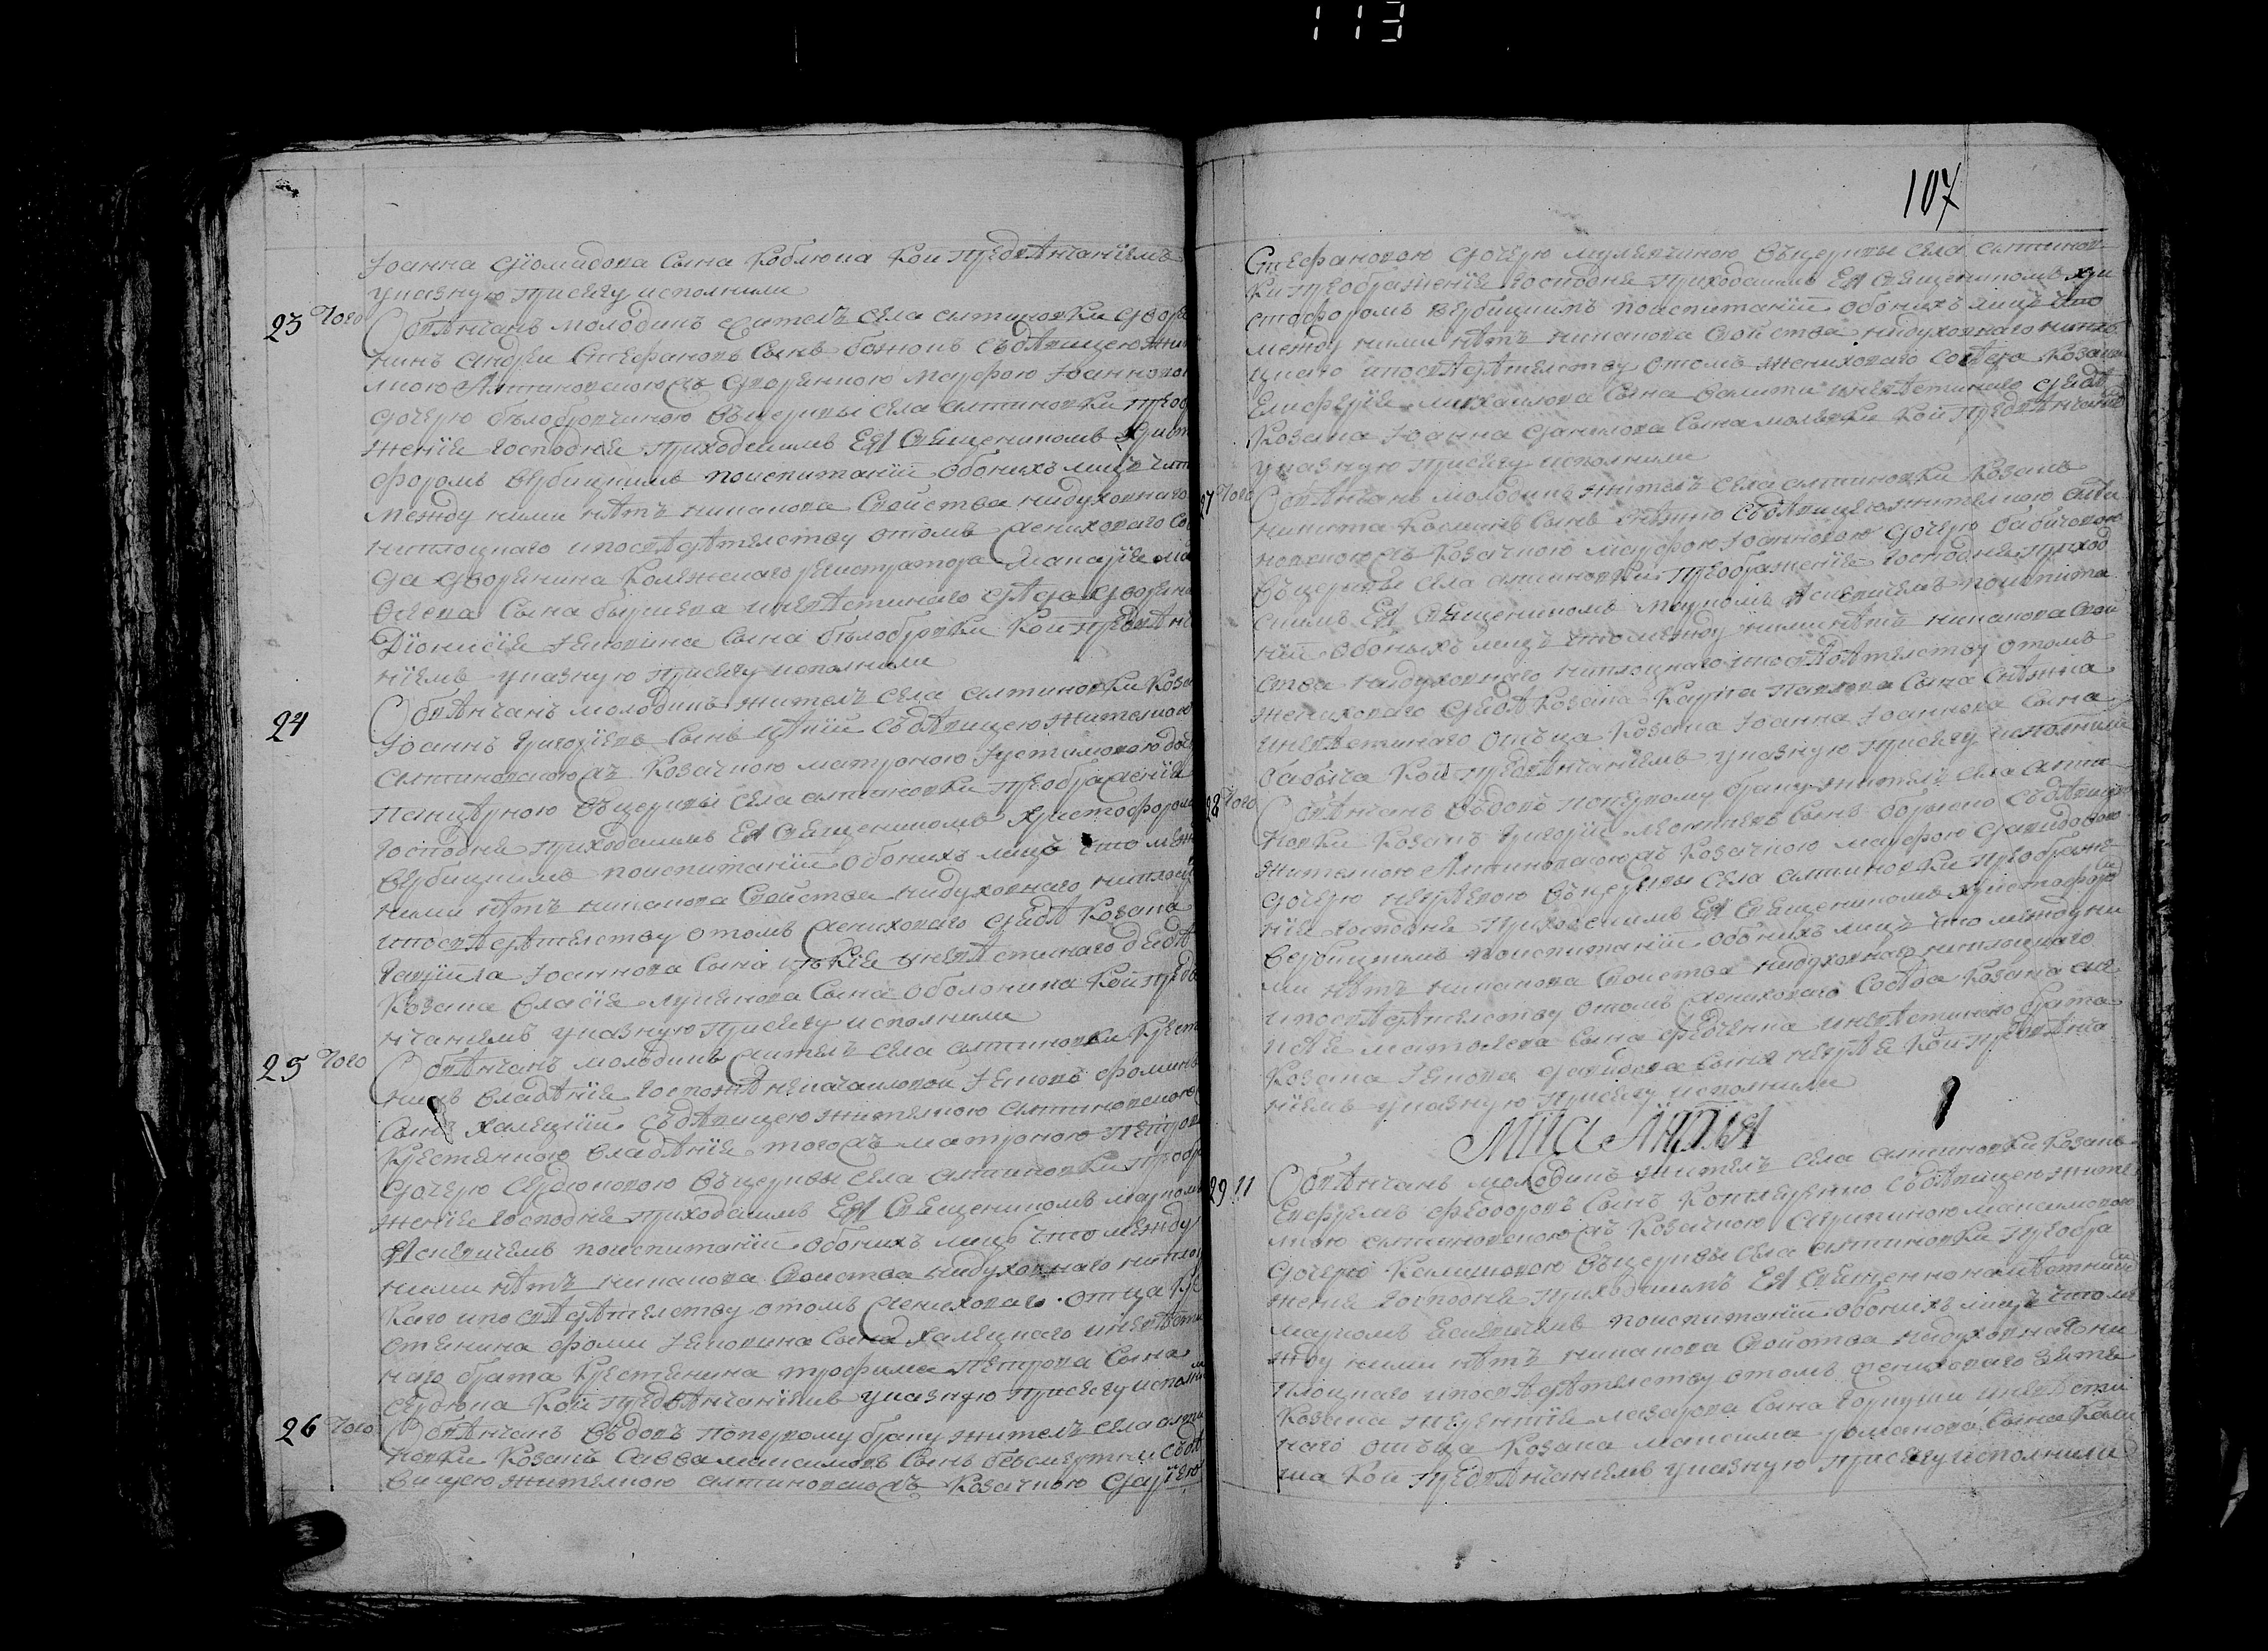 113
Іоанна Диомидова Сына Коблюка кои предвѣнчаніемъ
указную присягу исполнили
23 Того Обвѣнчанъ молодикъ жителъ села алтиновки дворе
нинъ андреи Стефановъ Сынъ божокъ Съдѣвицею жи
лкою Алтиновскоюжъ дворенкою марфою Іоанновою
дочерю бѣлобровчиною въцеркви села алтиновки преобра
женіе Господне приходскимъ Ея Священикомъ Христо
форомъ вербицкимъ поиспитаніи обоихъ лицъ что
между ними нѣтъ никакова Свойства нидуховнаго
ниплоцкаго ипосвѣдѣтелству отомъ Жениховаго сосе
да дворенина Колежскаго регистратора макаріе
Сына быршева иневѣстинаго дѣда дворенина
Діонисіе Сына бѣлобровки Кои предвѣнча
ніемъ указную присягу исполнили
24 Обвѣнчанъ молодикъ жителъ села алтиновки Козакъ
Іоаннъ Григоріевъ Сынъ Съдѣвицею жителкою
алтиновскоюжъ Козачкою матроною Іустимовою доч
въцеркви села алтиновки преображеніе
Господне приходскимъ Ея Священикомъ Христофоромъ
вербицкимъ поиспитаніи обоихъ лицъ что меж
ними нѣтъ никакова Свойства нидуховнаго ниплоц
ипосвѣдѣтелству отомъ Жениховаго дѣда Козака
Гавріила Іоаннова Сына иневѣстинаго дѣда
Козака власіе лукянова Сына оболоника Кои предвѣ
нчаніемъ указную присягу исполнили
25 Того Обвѣнчанъ молодикъ Жителъ села алтиновки Крест
нинъ владѣніе госпожи Іаковъ фоминъ
Сынъ халецкіи Съдѣвицею жителкою алтиновскою
Крестянкою владѣніе тогожъ матроною Петров
дочерю Сердюковою въцеркви села алтиновки преобра
женіе Господне приходскимъ Ея Священикомъ маркомъ
Ясневичемъ поиспитаніи обоихъ лицъ что между
ними нѣтъ никакова Свойства нидуховнаго ниплоц
каго ипосвѣдѣтелству отомъ Жениховаго отца Кре
стянина фоми Сына халецкаго иневѣсти
наго брата Крестянина трофима Петрова Сына
Сердюка Кои предвѣнчаніемъ указную присягу исполни
26 Того Обвѣнчанъ вдовъ поперкому браку жителъ села алти
новки Козакъ Савва максимовъ Сынъ безсмертни Съдѣ
вицею жителкою алтиновскожъ Козачкою даріею
107
Стефановою дочерю въцеркви села алтинов
ки преображеніе Господне приходскимъ Ея Священикомъ хри
стофоромъ вербицкимъ поиспитаніи обоихъ лицъ что
между ними нѣтъ никакова Свойства нидуховнаго нипло
цкаго ипосвѣдѣтелству отомъ жениховаго сосѣда Козака
Елисферіе михаилова Сына иневѣстинаго дѣда
Козака Іоанна данилова Сына Кои предвѣнчаніемъ
указную присягу исполнили
27 Того Обвѣнчанъ молодикъ жителъ села алтиновки Козакъ
никита Сынъ Съдѣвицею жителкою алти
новскоюжъ Козачкою марфою Іоанновою дочерю бабичовою
въцеркви села алтиновки преображеніе Господне приход
скимъ Ея Священикомъ маркомъ Ясневичемъ поиспита
ніи обоихъ лицъ что между ними нѣтъ никакова Свой
ства нидуховнаго ниплоцкаго ипосвѣдѣтелству отомъ
жениховаго дѣда Козака Карпа Павлова Сына
иневѣстинаго отъца Козака Іоанна Іоаннова Сына
бабыча Кои предвѣнчаніемъ указную присягу исполнили
28 Того Обвѣнчанъ вдовъ поперкому браку жителъ села алти
новки Козакъ Григоріи леонтіевъ Сынъ Съдѣвицею
жителкою Алтиновскоюжъ Козачкою марфою давидовою
дочерю въцеркви села алтиновки преображе
ніе Господне приходскимъ Ея Священикомъ христофоромъ
вербицкимъ поиспитаніи обоихъ лицъ что между ни
ми нѣтъ никакова Свойства нидуховнаго ниплоцкаго
ипосвѣдѣтелству отомъ жениховаго Сосѣда Козака
матфеева Сына федченка иневѣстинаго брата
Козака Іакова давидова Сына Кои предвѣнча
ніемъ указную присягу исполнили
МЦА Априля
29 11 Обвѣнчанъ молодикъ жителъ села алтиновки Козакъ
Евфремъ федоровъ Сынъ Котляренко Съдѣвицею жите
лкою алтиновскоюжъ Козачкою максимовою
дочерю въцеркви села алтиновки преобра
женіе Господне приходскимъ Ея Священнонамѣстникомъ
маркомъ Ясневичемъ поиспитаніи обоихъ лицъ что ме
жду ними нѣтъ никакова Свойства нидуховнаго ни
плоцкаго ипосвѣдѣтелству отомъ жениховаго зятя
Козака терентіе лазарова Сына иневѣсти
наго отъца Козака максима романова Сына
ша Кои предвѣнчаніемъ указную присягу исполнили